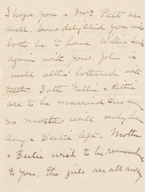 I hope you & Mrs. Peet are
well. Some delightful you will
both be to have Willie
again with you. John is
well altho bothered with
teeth. Both Nellie & Kittie
are to be married this
so mother will only have
Amy & Bertie left. Mother
& Bertie wish to be remembered
to you. The girls are all away